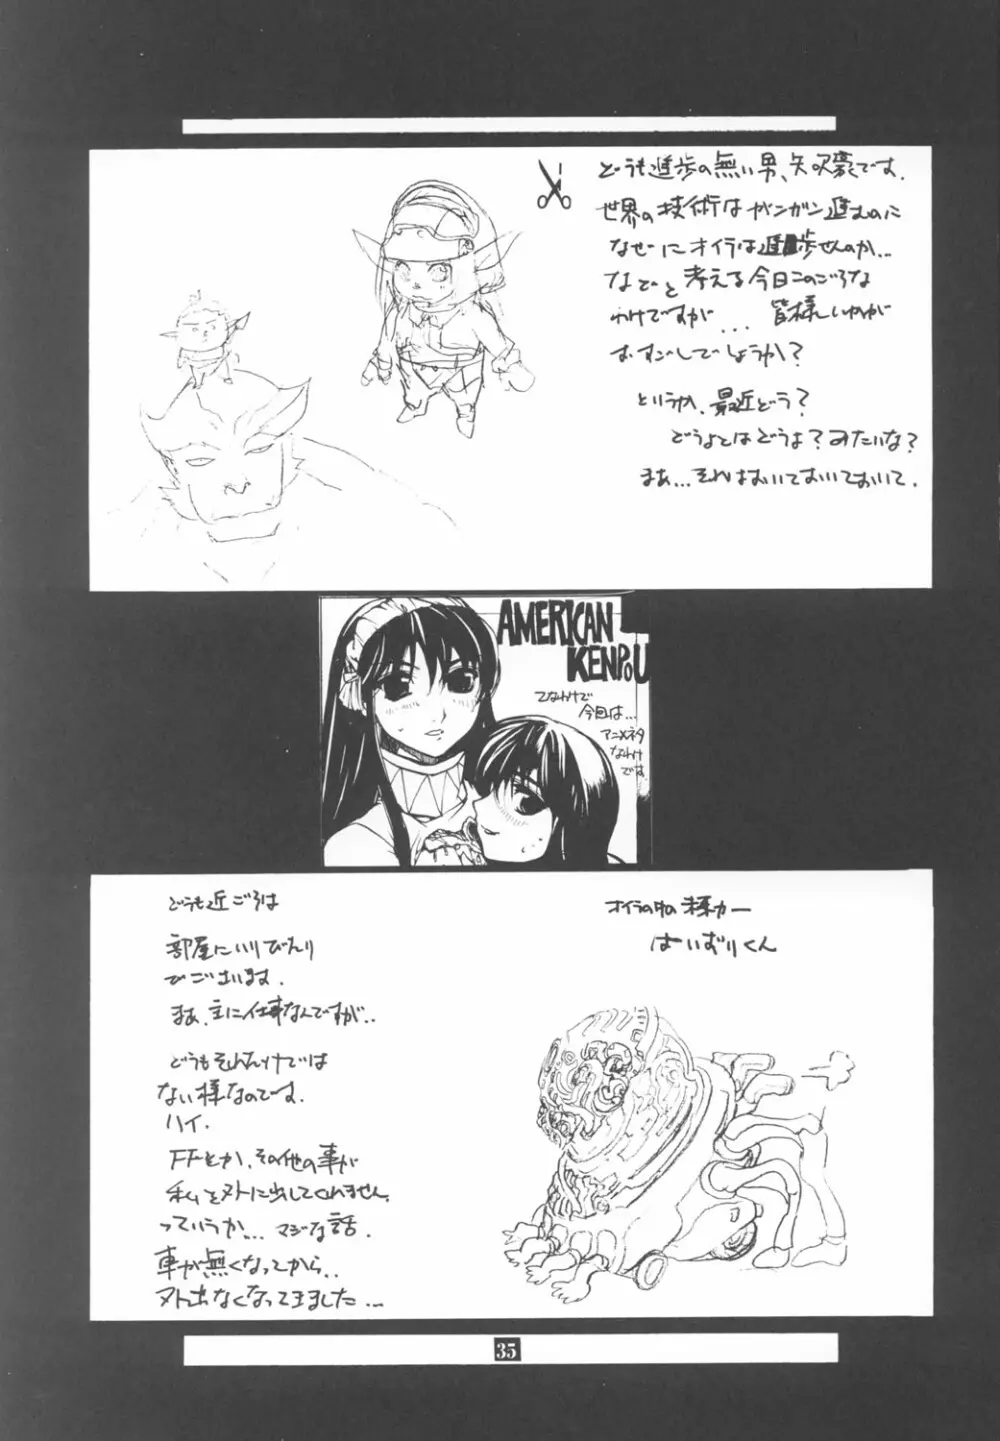 どうも進歩の無い男、矢吹豪です.
世界の技術はガンガン進むのに
なぜにオイラは進歩せんのか...
などと考える今日このごろな
わけですが... 皆様いかが
おすごしでしょうか?
というか、最近どう?
どうよとはどうよ?みたいな?
まぁ...それはおいておいておいて.
AMERICAN
KENPOU
てなわけで
今回は...
アニメネタ
なわけ
です.
どうも近ごろは
部屋にいりびたり
でございます.
まぁ、主に仕事なんですが..
どうもそれだけでは
ない様なのです.
ハイ.
FFとか、その他の事が
私を外に出してくれません.
っていうか... マジな話.
車が無くなってから..
外出なくなってきました...
オイラの中の棟カー
はいずりくん
35